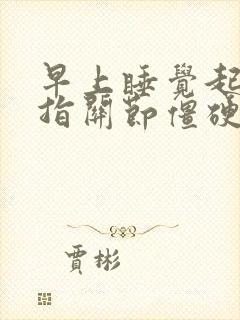 早上睡覺起
指關節僵硬
賈彬